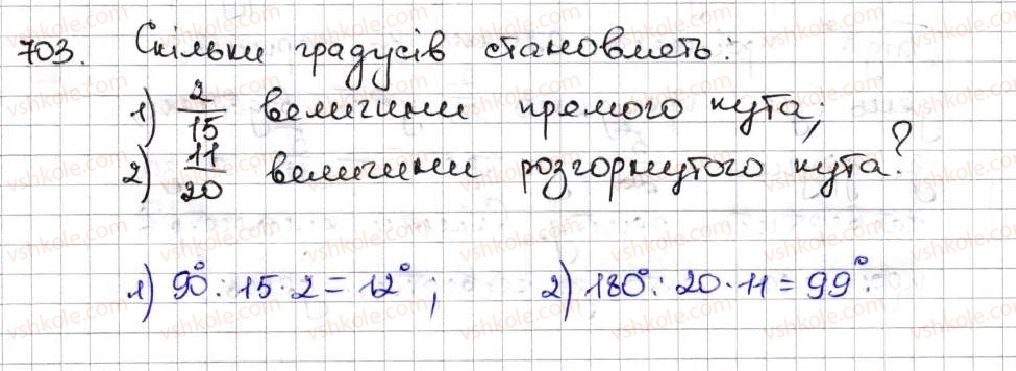 703. Скільки градусів становлять:
1) 2/15 величини прямого кута;
2) 11/20 величини розгорнутого кута?
1) 90° : 15 · 2 = 12° ; 2) 180° : 20 · 11 = 99° .